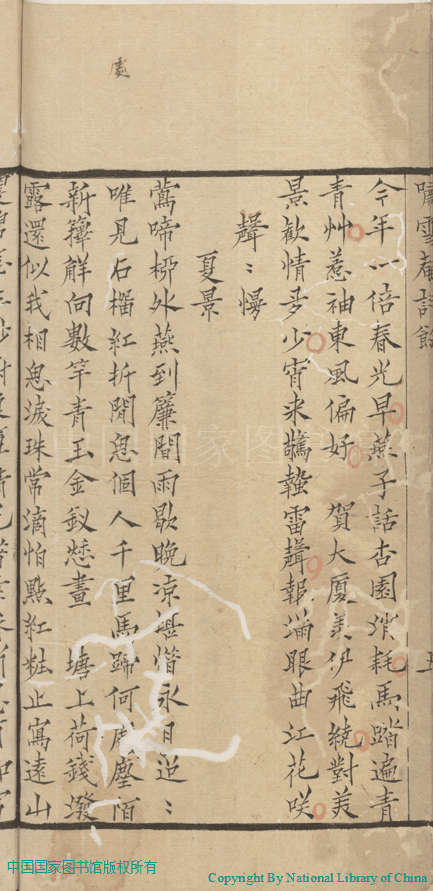 嘯雪菴詩餘 五
今年一倍春光早燕子話杏園消耗馬踏遍青
青艸惹袖東風偏好 賀大厦羨伊飛繞對美
景歡情多少宵来驚蟄雷聲報滿眼曲江花咲
聲聲慢
夏景
鶯啼柳外燕到簾間雨歇晚凉堪惜永日迢〻
唯見石榴紅折閒思個人千里馬蹄何處塵陌
新籜解向數竿青玉金釵慵畫 塘上荷錢潑
露還似我相思淚珠常滴怕點紅粧止寫遠山
處
中国国家图书馆版权所有
Copyright By National Library of China